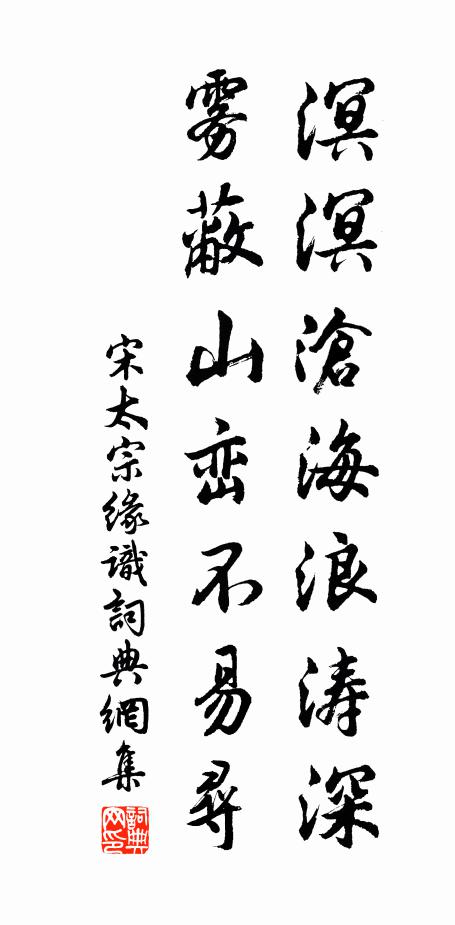 溟溟滄海浪涛深
雾蔽山峦不易尋
宋太宗缘識詞典網集
詞典网印